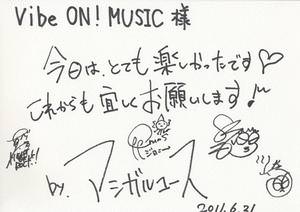 Vibe ON! MUSIC 様
今日は、とても楽しかったです♡
これからも宜しくお願いします♪
by. アシガルユース
2011.6.21